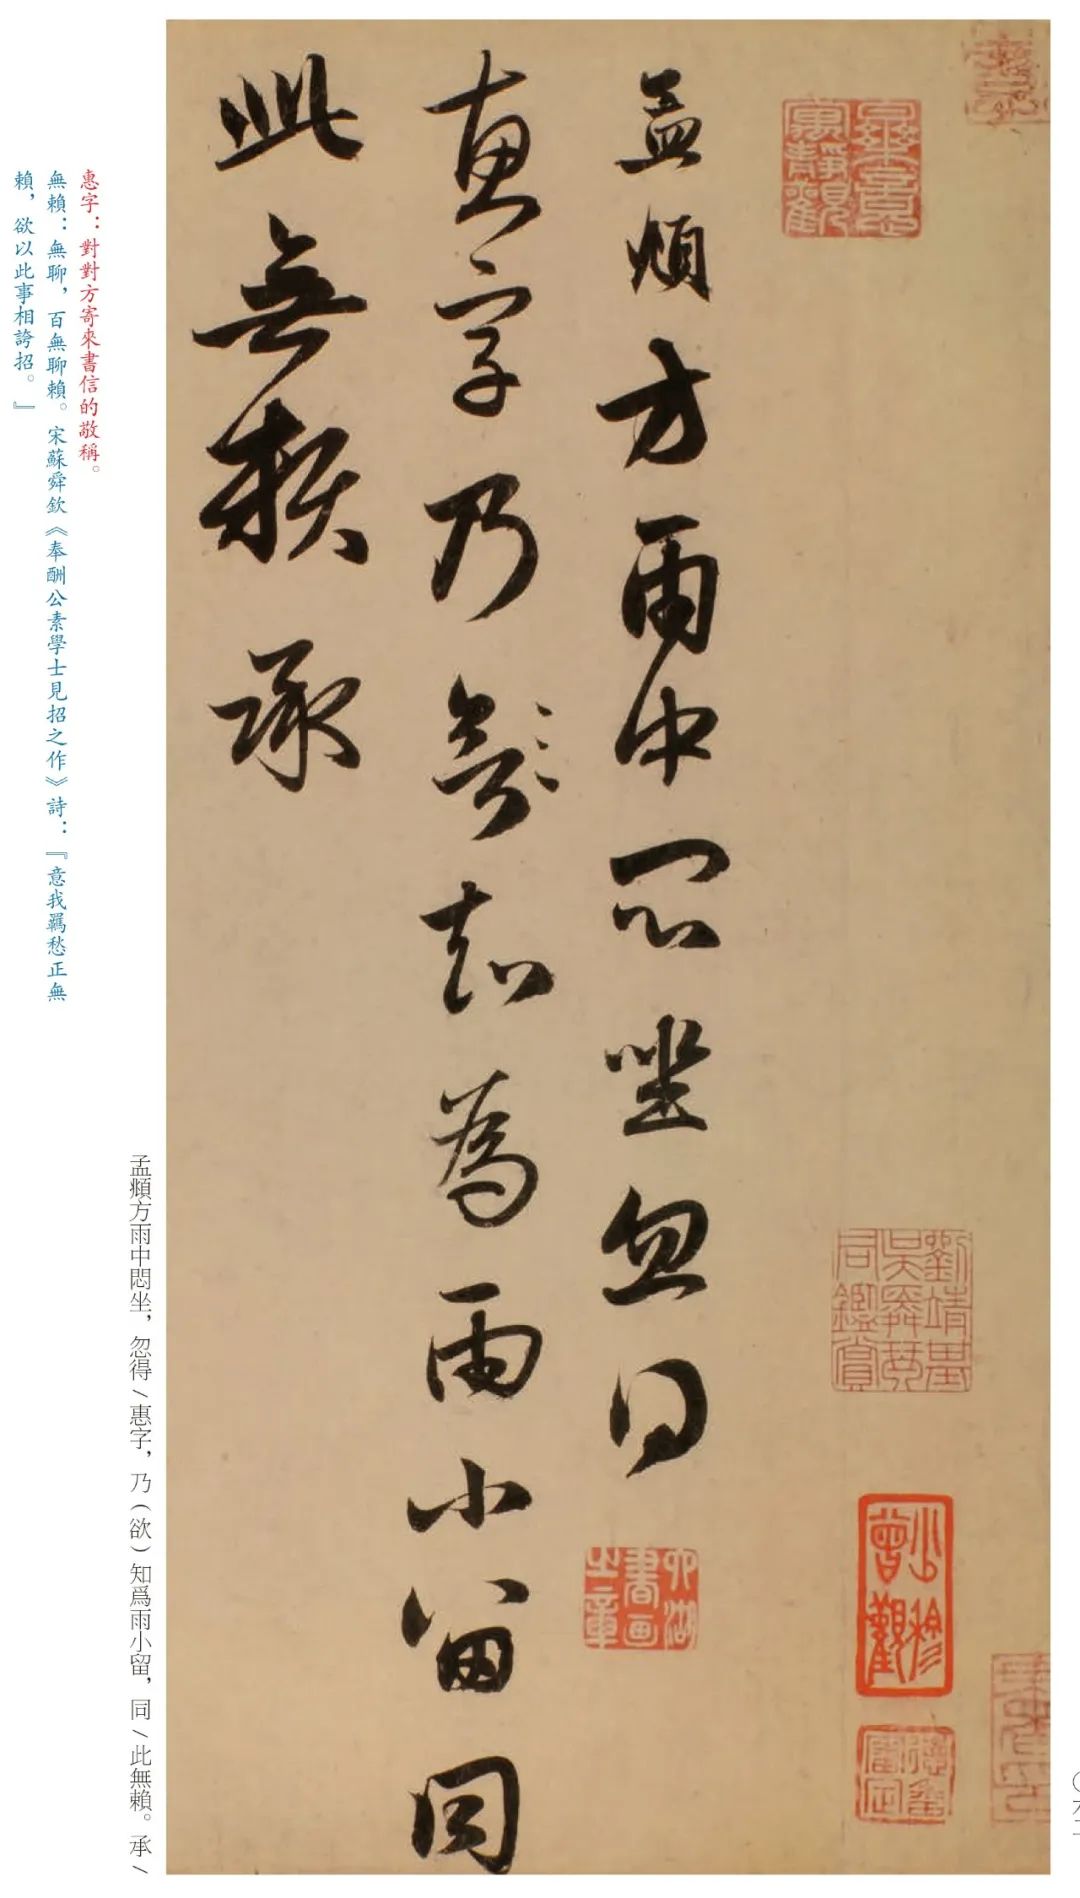 孟頫方雨中悶坐忽得
惠字乃欲知為雨小留同
此無賴承
劉靖基
吳舜英
同鑑賞
少穆
曾觀
六湖
書画
之章
孟頫方雨中悶坐，忽得/惠字，乃（欲）知爲雨小留，同/此無賴。承/
惠字：對對方寄來書信的敬稱。
無賴：無聊，百無聊賴。宋蘇舜欽《奉酬公素學士見招之作》詩：『意我羈愁正無
賴，欲以此事相誇招。』